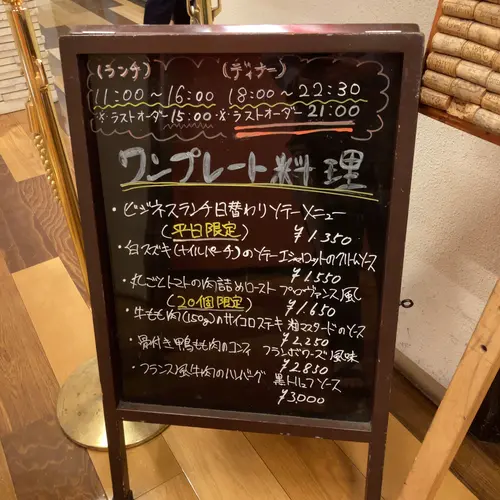 (ランチ) (ディナー)
11:00～16:00 18:00～22:30
※ラストオーダー15:00 ※ラストオーダー21:00
ワンプレート料理
・ビジネスランチ日替わりソテーメニュー
(平日限定) ¥1.350
・白スズキ(ナイルパーチ)のソテーエシャロットのクリームソース
¥1.550
・丸ごとトマトの肉詰めロースト プロヴァンス風
(20個限定) ¥1.650
・牛もも肉(150g)のサイコロステーキ 粒マスタードのソース
¥2.250
・骨付き鴨もも肉のコンフィ フランボワーズ風味
¥2.850
・フランス風牛肉のハンバーグ 黒トリュフソース
¥3,000